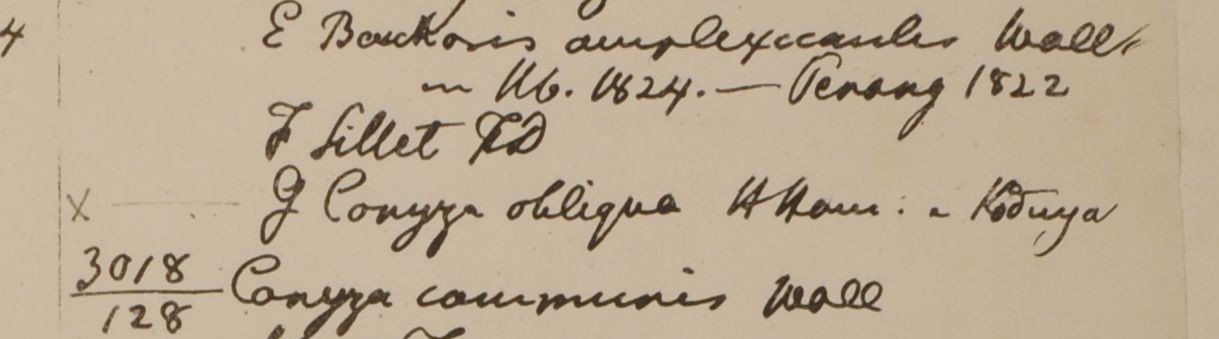 4 E Bauckoris amplexicaulis Wall
in Hb. 1824. — Penang 1822
F Sillet FD
X G Conyza obliqua HHam: a Koduya
3018 Conyza communis Wall
128